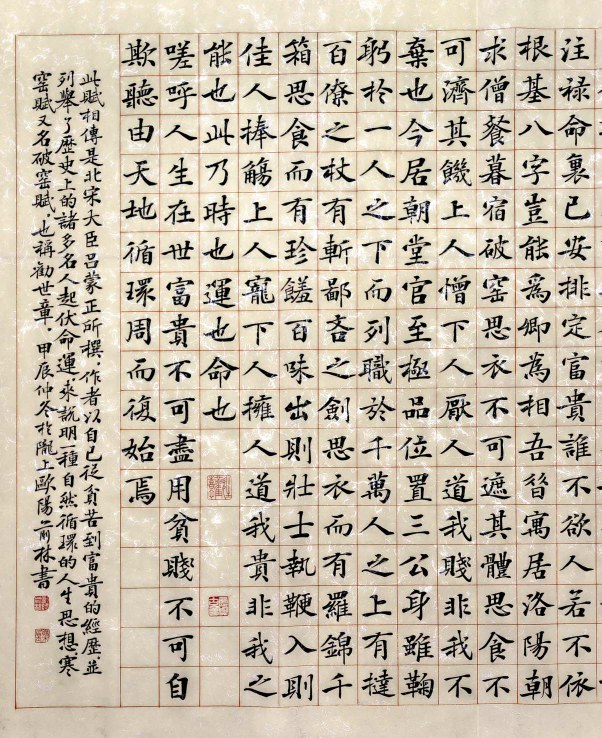 注禄命裏已安排定富貴誰不欲人若不依
根基八字豈能爲卿為相吾昔寓居洛陽朝
求僧餐暮宿破窑思衣不可遮其體思食不
可濟其饑上人憎下人厭人道我賤非我不
棄也今居朝堂官至極品位置三公身雖鞠
躬於一人之下而列職於千萬人之上有撻
百僚之杖有斬鄙吝之劍思衣而有羅錦千
箱思食而有珍饈百味出則壯士執鞭入則
佳人捧觴上人寵下人擁人道我貴非我之
能也此乃時也運也命也
嗟呼人生在世富貴不可盡用貧賤不可自
欺聽由天地循環周而復始焉
此賦相傳是北宋大臣吕蒙正所撰．作者以自已從貧苦到富貴的經歷．並
列舉了歷史上的諸多名人起伏命運．來說明一種自然循環的人生思想．寒
窑賦又名破窑賦．也稱勸世章．甲辰仲冬於隴上歐陽前林書